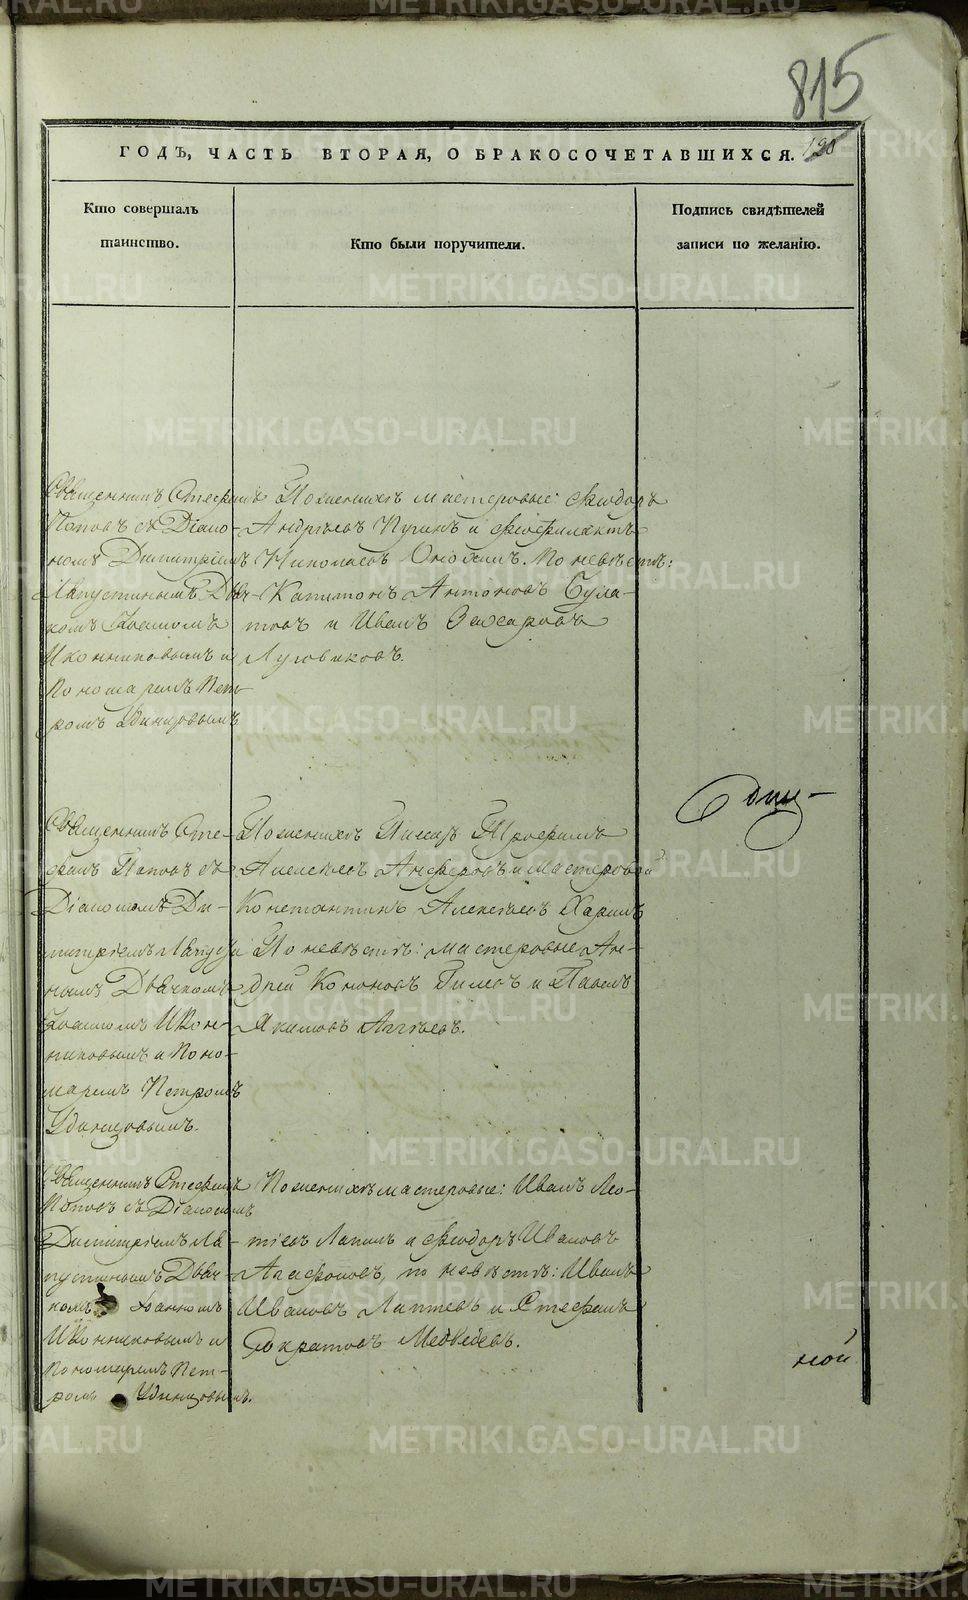 815
ГОДЪ, ЧАСТЬ ВТОРАЯ, О БРАКОСОЧЕТАВШИХСЯ. 120
Кто совершалъ
таинство.
Кто были поручители.
Подпись свидѣтелей
записи по желанію.
Священникъ Стефанъ
Поповъ съ Діако-
номъ Димитріемъ
Дьяч-
комъ Іоанномъ
Иконниковымъ и
Пономаремъ Пет-
ромъ Удинцовымъ
По женихѣ мастеровые: Ѳеодоръ
Андреевъ и Ѳеофилактъ
Николаевъ По невѣстѣ:
Капитонъ Антоновъ Була-
товъ и Иванъ Захаровъ
Луговиковъ.
Священникъ Сте-
фанъ Поповъ съ
Діакономъ Ди-
митріемъ
Дьячкомъ
Іоанномъ Икон-
никовымъ и Поно-
маремъ Петромъ
Удинцовымъ.
По женихѣ Трофимъ
Алексѣевъ и мастеровой
Константинъ Алексѣевъ
По невѣстѣ: мастеровые Ан-
дрей Кононовъ Гилевъ и Павелъ
Якимовъ
Священникъ Стефанъ
Поповъ съ Діакономъ
Димитріемъ
Дьяч-
комъ Іоанномъ
Иконниковымъ и
Пономаремъ Пет-
ромъ Удинцовымъ.
По женихѣ мастеровые: Иванъ
и Ѳеодоръ Ивановъ
Агафоновъ, по невѣстѣ: Иванъ
Ивановъ Лаптевъ и Стефанъ
Сократовъ Медведевъ.
ной
METRIKI.GASO-URAL.RU